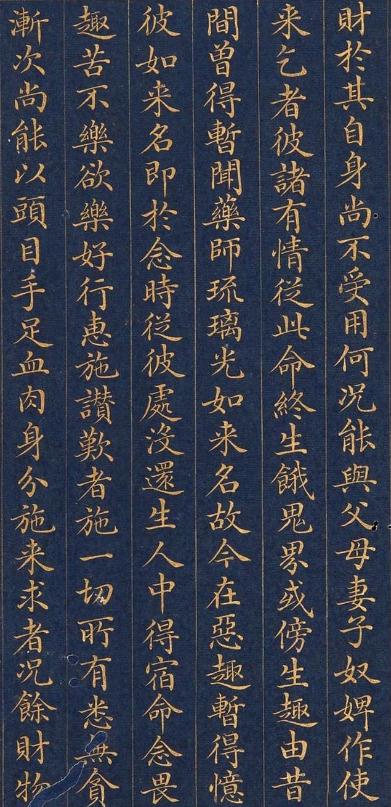 財於其自身尚不受用何况能與父母妻子奴婢作使
来乞者彼諸有情從此命終生餓鬼界或傍生趣由昔
間曾得暫聞藥師琉璃光如来名故今在惡趣暫得憶
彼如来名即於念時從彼處沒還生人中得宿命念畏
趣苦不樂欲樂好行惠施讃歎者施一切所有悉無貪
漸次尚能以頭目手足血肉身分施来求者况餘財物